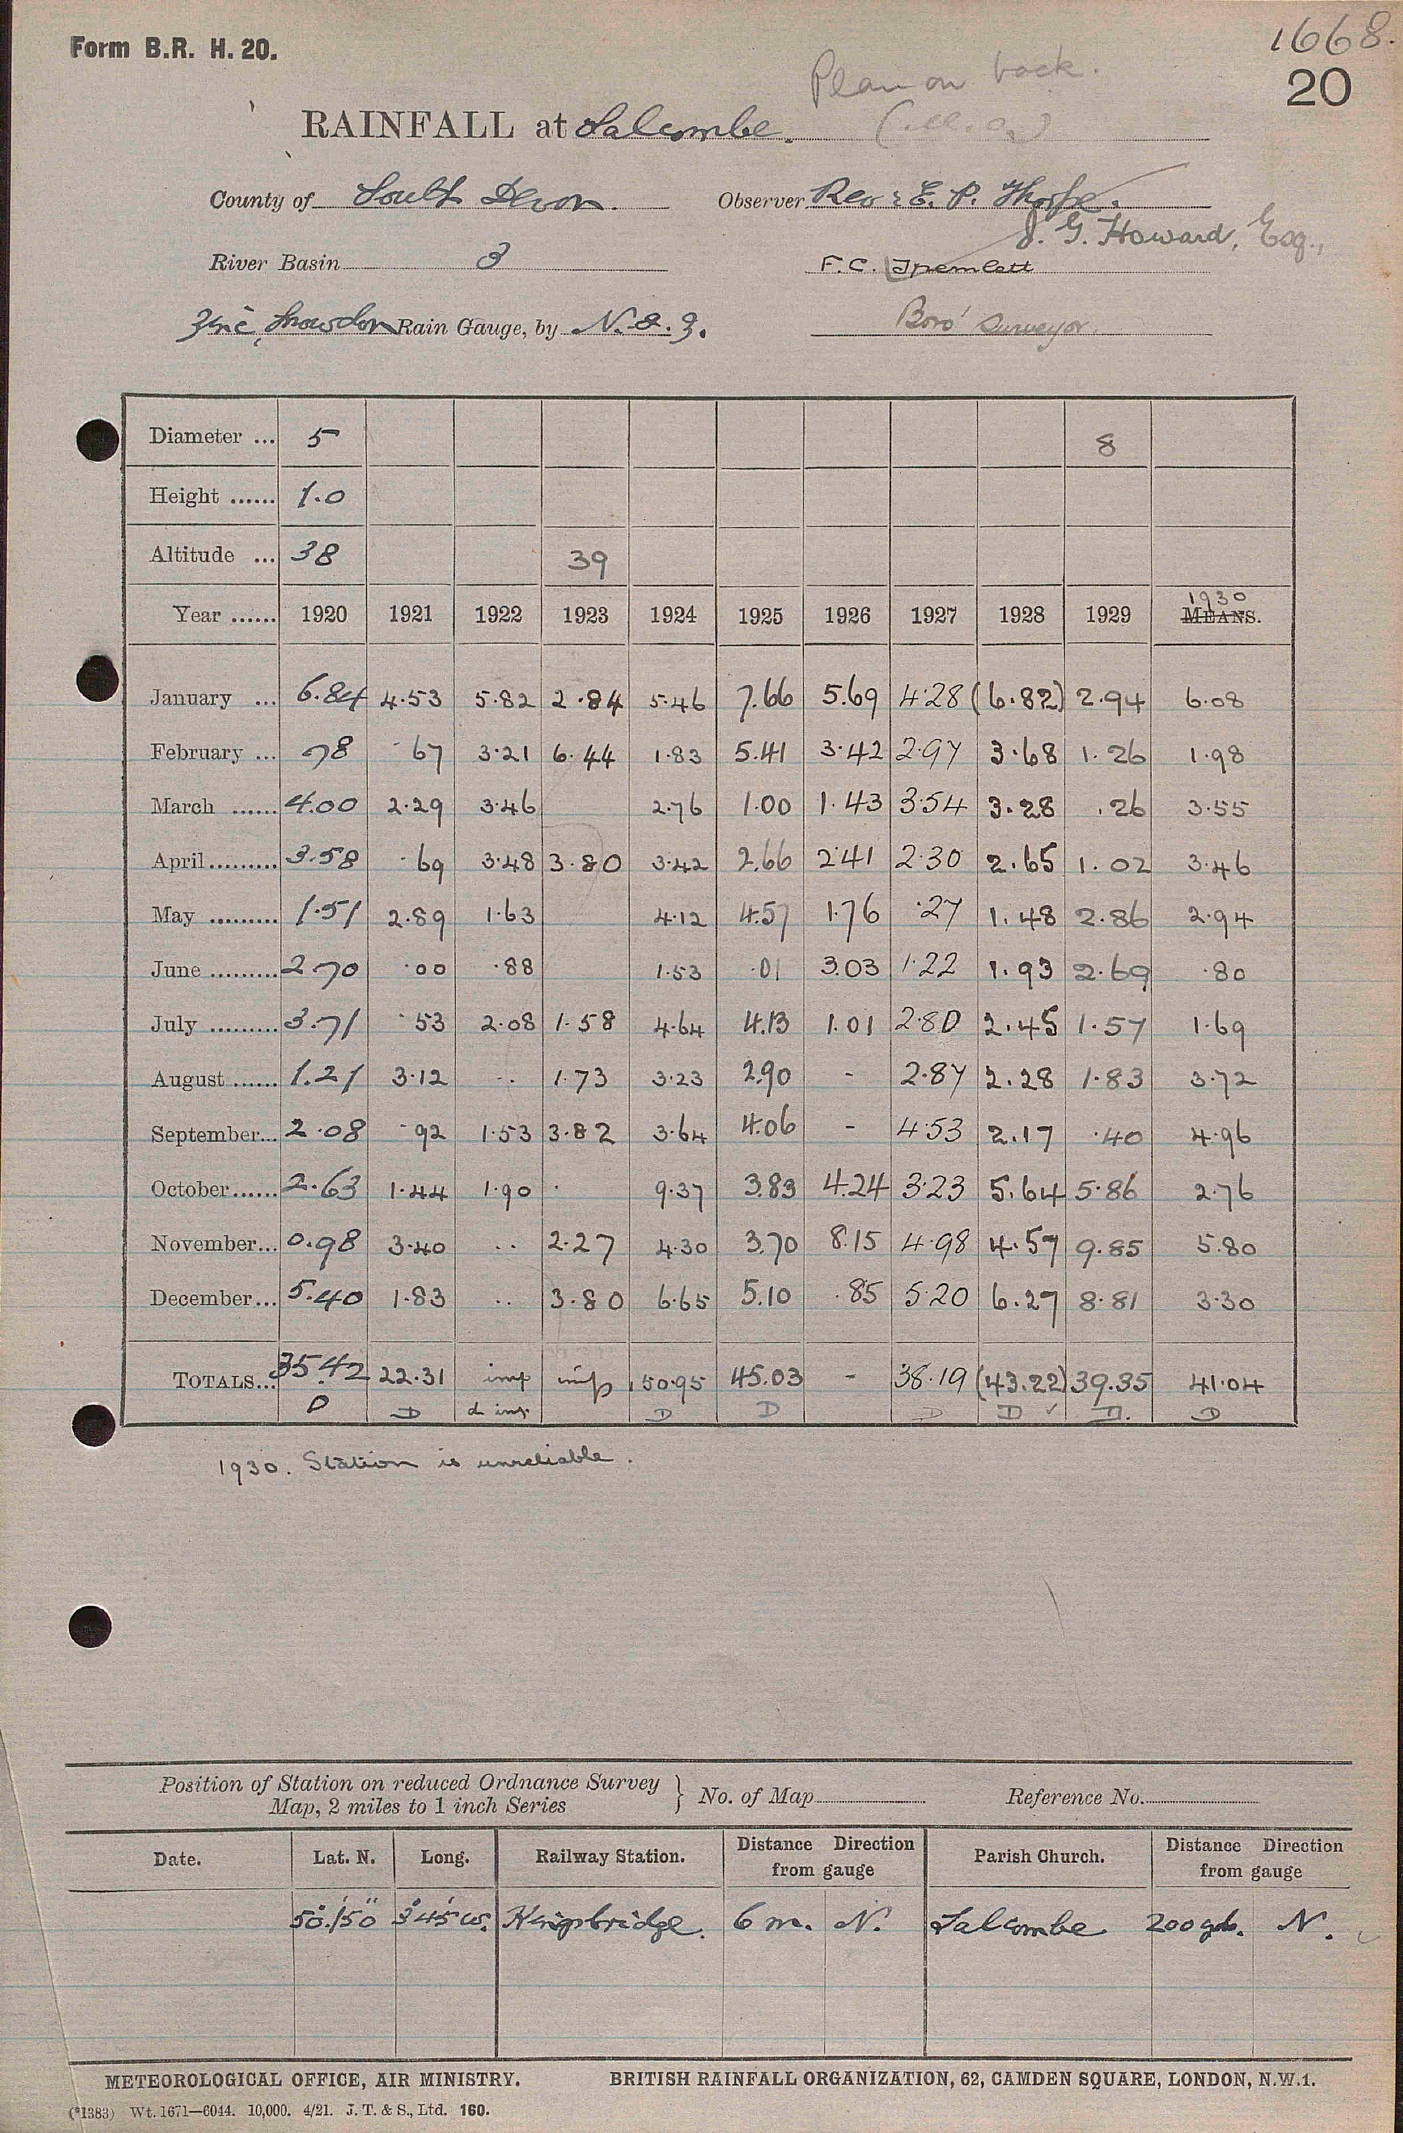 Form B.R. H. 20.
1668.
20
Plan on back.
RAINFALL at Salcombe.
County of South Devon. Observer Rev: E. P. Thorpe.
J. G. Howard, Esq.,
River Basin 3 F.C. Tremlett
Zinc Snowdon Rain Gauge, by N. & Z. Boro' Surveyor.
Diameter ... 5 8
Height ...... 1.0
Altitude ... 38 39
Year ...... 1920 1921 1922 1923 1924 1925 1926 1927 1928 1929 1930 MEANS.
January ... 6.84 4.53 5.82 2.84 5.46 7.66 5.69 4.28 (6.82) 2.94 6.08
February ... 78 .67 3.21 6.44 1.83 5.41 3.42 2.97 3.68 1.26 1.98
March ...... 4.00 2.29 3.46 2.76 1.00 1.43 3.54 3.28 .26 3.55
April......... 3.58 .69 3.48 3.80 3.42 2.66 2.41 2.30 2.65 1.02 3.46
May ......... 1.51 2.89 1.63 4.12 4.57 1.76 .27 1.48 2.86 2.94
June ......... 2.70 .00 .88 1.53 .01 3.03 1.22 1.93 2.69 .80
July ......... 3.71 .53 2.08 1.58 4.64 4.13 1.01 2.80 2.45 1.57 1.69
August ...... 1.21 3.12 .. 1.73 3.23 2.90 - 2.87 2.28 1.83 3.72
September... 2.08 .92 1.53 3.82 3.64 4.06 - 4.53 2.17 .40 4.96
October...... 2.63 1.44 1.90 . 9.37 3.83 4.24 3.23 5.64 5.86 2.76
November... 0.98 3.40 .. 2.27 4.30 3.70 8.15 4.98 4.57 9.85 5.80
December... 5.40 1.83 .. 3.80 6.65 5.10 .85 5.20 6.27 8.81 3.30
TOTALS... 35.42 22.31 imp imp 50.95 45.03 - 38.19 (43.22) 39.35 41.04
D D d imp. D D D D ✓ D. D
1930. Station is unreliable.
Position of Station on reduced Ordnance Survey
Map, 2 miles to 1 inch Series } No. of Map Reference No.
Date. Lat. N. Long. Railway Station. Distance Direction from gauge Parish Church. Distance Direction from gauge
50° 15' 0" 3° 45' W. Kingsbridge. 6 m. N. Salcombe 200 yds. N.
METEOROLOGICAL OFFICE, AIR MINISTRY. BRITISH RAINFALL ORGANIZATION, 62, CAMDEN SQUARE, LONDON, N.W.1.
(*1383) Wt. 1671—6044. 10,000. 4/21. J. T. & S., Ltd. 160.